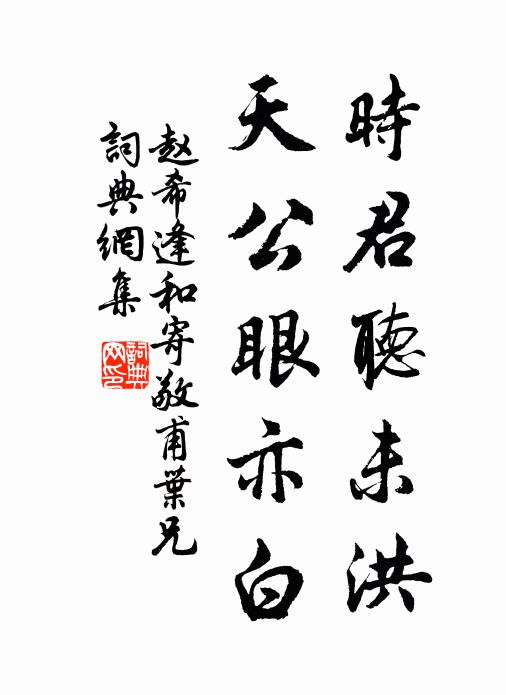 時君聽未洪
天公眼亦白
赵希逢和寄敬甫葉兄
詞典網集
詞典
网印